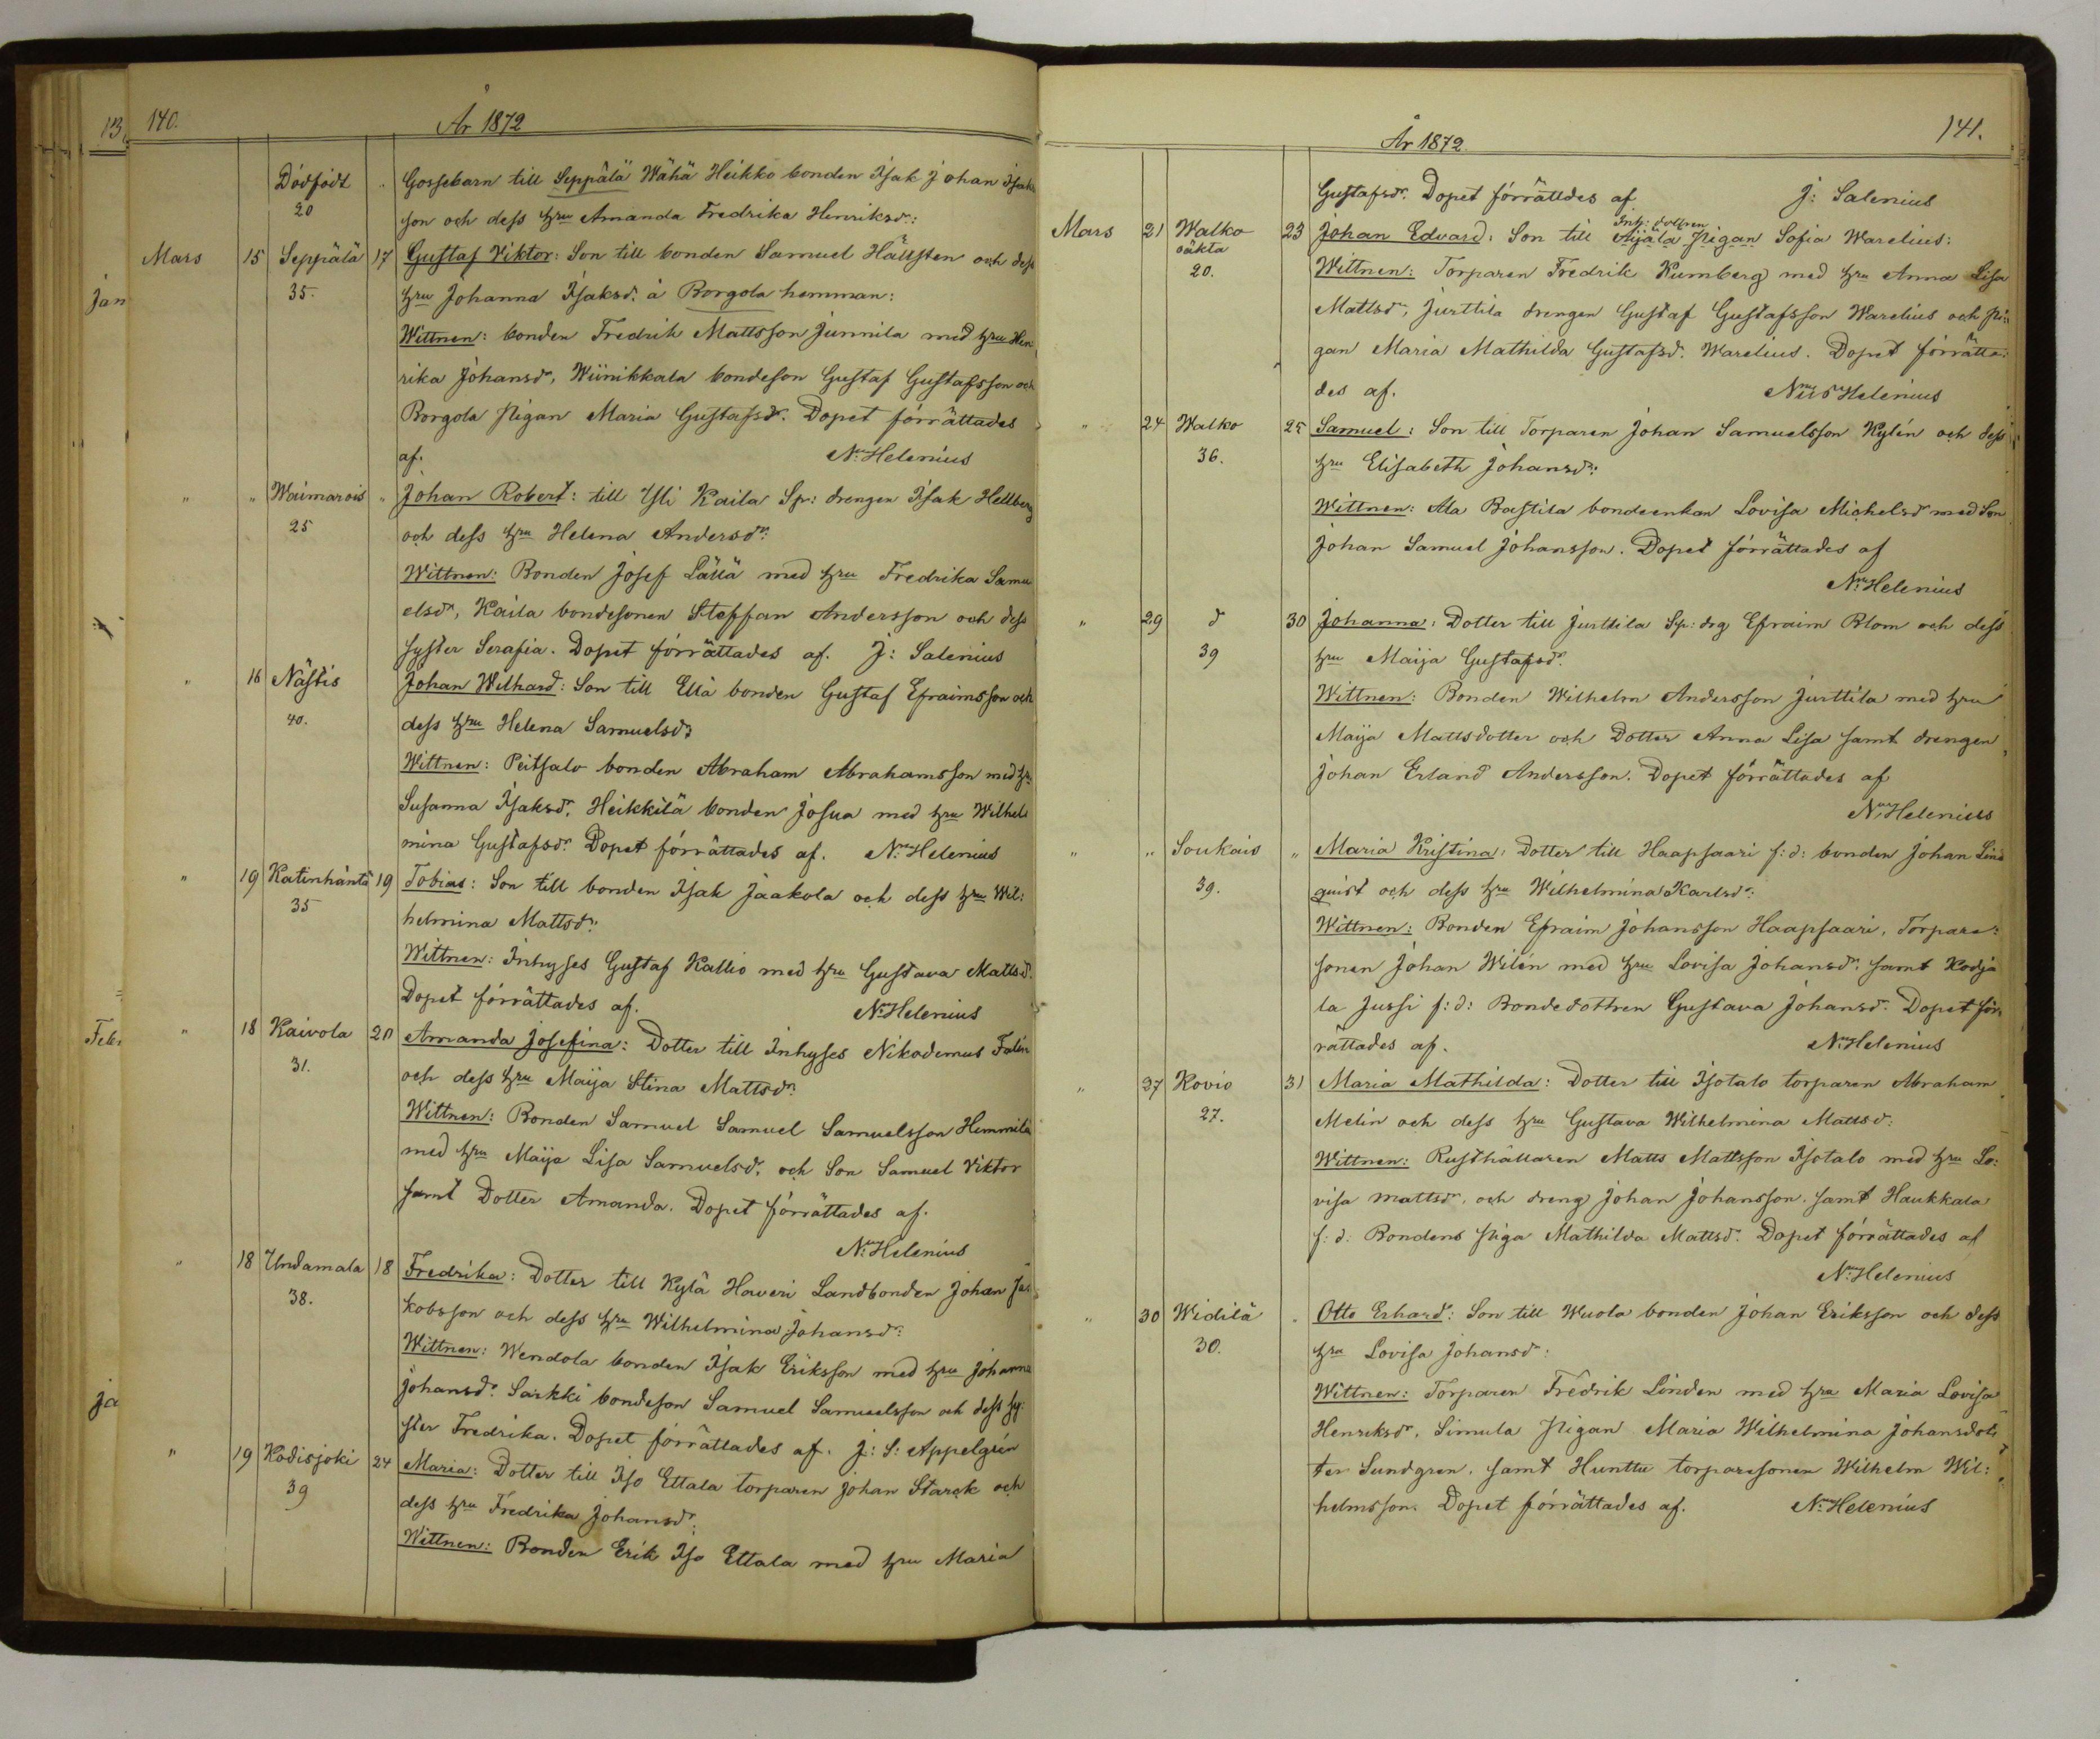 13
140.
År 1872
Dödfödt " Gossebarn till Seppälä Wähä Heikko bonden Isak Johan Isak
20 son och dess hru Amanda Fredrika Henriksdr:
Mars 15 Seppälä 17 Gustaf Viktor: Son till bonden Samuel Hällsten och dess
Jan
35. hru Johanna Isaksd: å Borgola hemman:
Wittnen: bonden Fredrik Mattsson Junnila med hru Hen
rika Johansdr, Wiinikkala bondeson Gustaf Gustafsson och
Borgola pigan Maria Gustafsdr. Dopet förrättades
af. N: Helenius
" " Waimarois " Johan Robert: till Yli Kaila Sp: drengen Isak Hellberg
25 och dess hru Helena Andersdr:
Wittnen: Bonden Josef Lällä med hru Fredrika Samu
elsdr, Kaila bondesonen Steffan Andersson och dess
syster Serafia. Dopet förrättades af. J: Salenius
" 16 Nästis Johan Wilhard: Son till Ellä bonden Gustaf Efraimsson och
40. dess hru Helena Samuelsdr
Wittnen: Peitsalo bonden Abraham Abrahamsson med hru
Susanna Isaksdr. Heikkilä bonden Josua med hru Wilhel
mina Gustafsdr. Dopet förrättades af. N: Helenius
" 19 Katinhäntä 19 Tobias: Son till bonden Isak Jaakola och dess hru Wil:
35 helmina Mattsdr:
Wittnen: Inhyses Gustaf Kallio med hru Gustava Mattsd.
Dopet förrättades af. N: Helenius
Feb
" 18 Kaivola 20 Amanda Josefina: Dotter till Inhyses Nikodemus Falin
31. och dess hru Maija Stina Mattsdr:
Wittnen: Bonden Samuel Samuel Samuelsson Hemmilä
med hru Maija Lisa Samuelsdr. och Son Samuel Viktor
samt Dotter Amanda. Dopet förrättades af.
N: Helenius
" 18 Undamala 18 Fredrika: Dotter till Kylä Haveri Landbonden Johan Ja:
38. kobsson och dess hru Wilhelmina Johansdr:
Wittnen: Wendola bonden Isak Eriksson med hru Johanna
Ja
Johansdr. Sarkki bondeson Samuel Samuelsson och dess sy:
ster Fredrika. Dopet förrättades af. J: S: Appelgrén
" 19 Kodisjoki 24 Maria: Dotter till Iso Ettala torparen Johan Starck och
39 dess hru Fredrika Johansdr:
Wittnen: Bonden Erik Iso Ettala med hru Maria
141.
År 1872.
Gustafsdr. Dopet förrättdes af J: Salenius
Inh: dottren
Mars 21 Walko 23 Johan Edvard: Son till Äijälä pigan Sofia Warelius:
oäkta
20. Wittnen: Torparen Fredrik Kumberg med hru Anna Lisa
Mattsdr, Jurttila drengen Gustaf Gustafsson Warelius och pi:
gan Maria Mathilda Gustafsd. Warelius. Dopet förrätta:
des af. Nils Helenius
" 24 Walko 25 Samuel: Son till Torparen Johan Samuelsson Kylén och dess
36. hru Elisabeth Johansdr:
Wittnen: Ala Rastila bondeenkan Lovisa Michelsdr med Son
Johan Samuel Johansson. Dopet förrättades af
N: Helenius
" 29 d 30 Johanna: Dotter till Jurttila Sp: drg Efraim Blom och dess
39 hru Maija Gustafsdr.
Wittnen: Bonden Wilhelm Andersson Jurttila med hru
Maija Mattsdotter och Dotter Anna Lisa samt drengen
Johan Erland Andersson. Dopet förrättades af
N: Helenius
" " Soukais " Maria Kristina: Dotter till Haapsaari f: d: bonden Johan Lind
39. quist och dess hru Wilhelmina Karlsdr:
Wittnen: Bonden Efraim Johansson Haapsaari, Torpare:
sonen Johan Wilén med hru Lovisa Johansdr: samt Kodja
la Jussi f: d: Bondedottren Gustava Johansdr. Dopet för:
rättades af. N: Helenius
" 37 Kovio 31 Maria Mathilda: Dotter till Isotalo torparen Abraham
27. Melin och dess hru Gustava Wilhelmina Mattsd:
Wittnen: Rusthållaren Matts Mattsson Isotalo med hru Lo:
visa Mattsdr, och dreng Johan Johansson. samt Haukkala
f: d: Bondens piga Mathilda Mattsd. Dopet förrättades af
N: Helenius
" 30 Widilä " Otto Erhard: Son till Wuola bonden Johan Eriksson och dess
30. hru Lovisa Johansdr:
Wittnen: Torparen Fredrik Linden med hru Maria Lovisa
Henriksdr, Simula pigan Maria Wilhelmina Johansdot:
ter Sundgren. samt Hunttu torparesonen Wilhelm Wil:
helmsson. Dopet förrättades af. N: Helenius